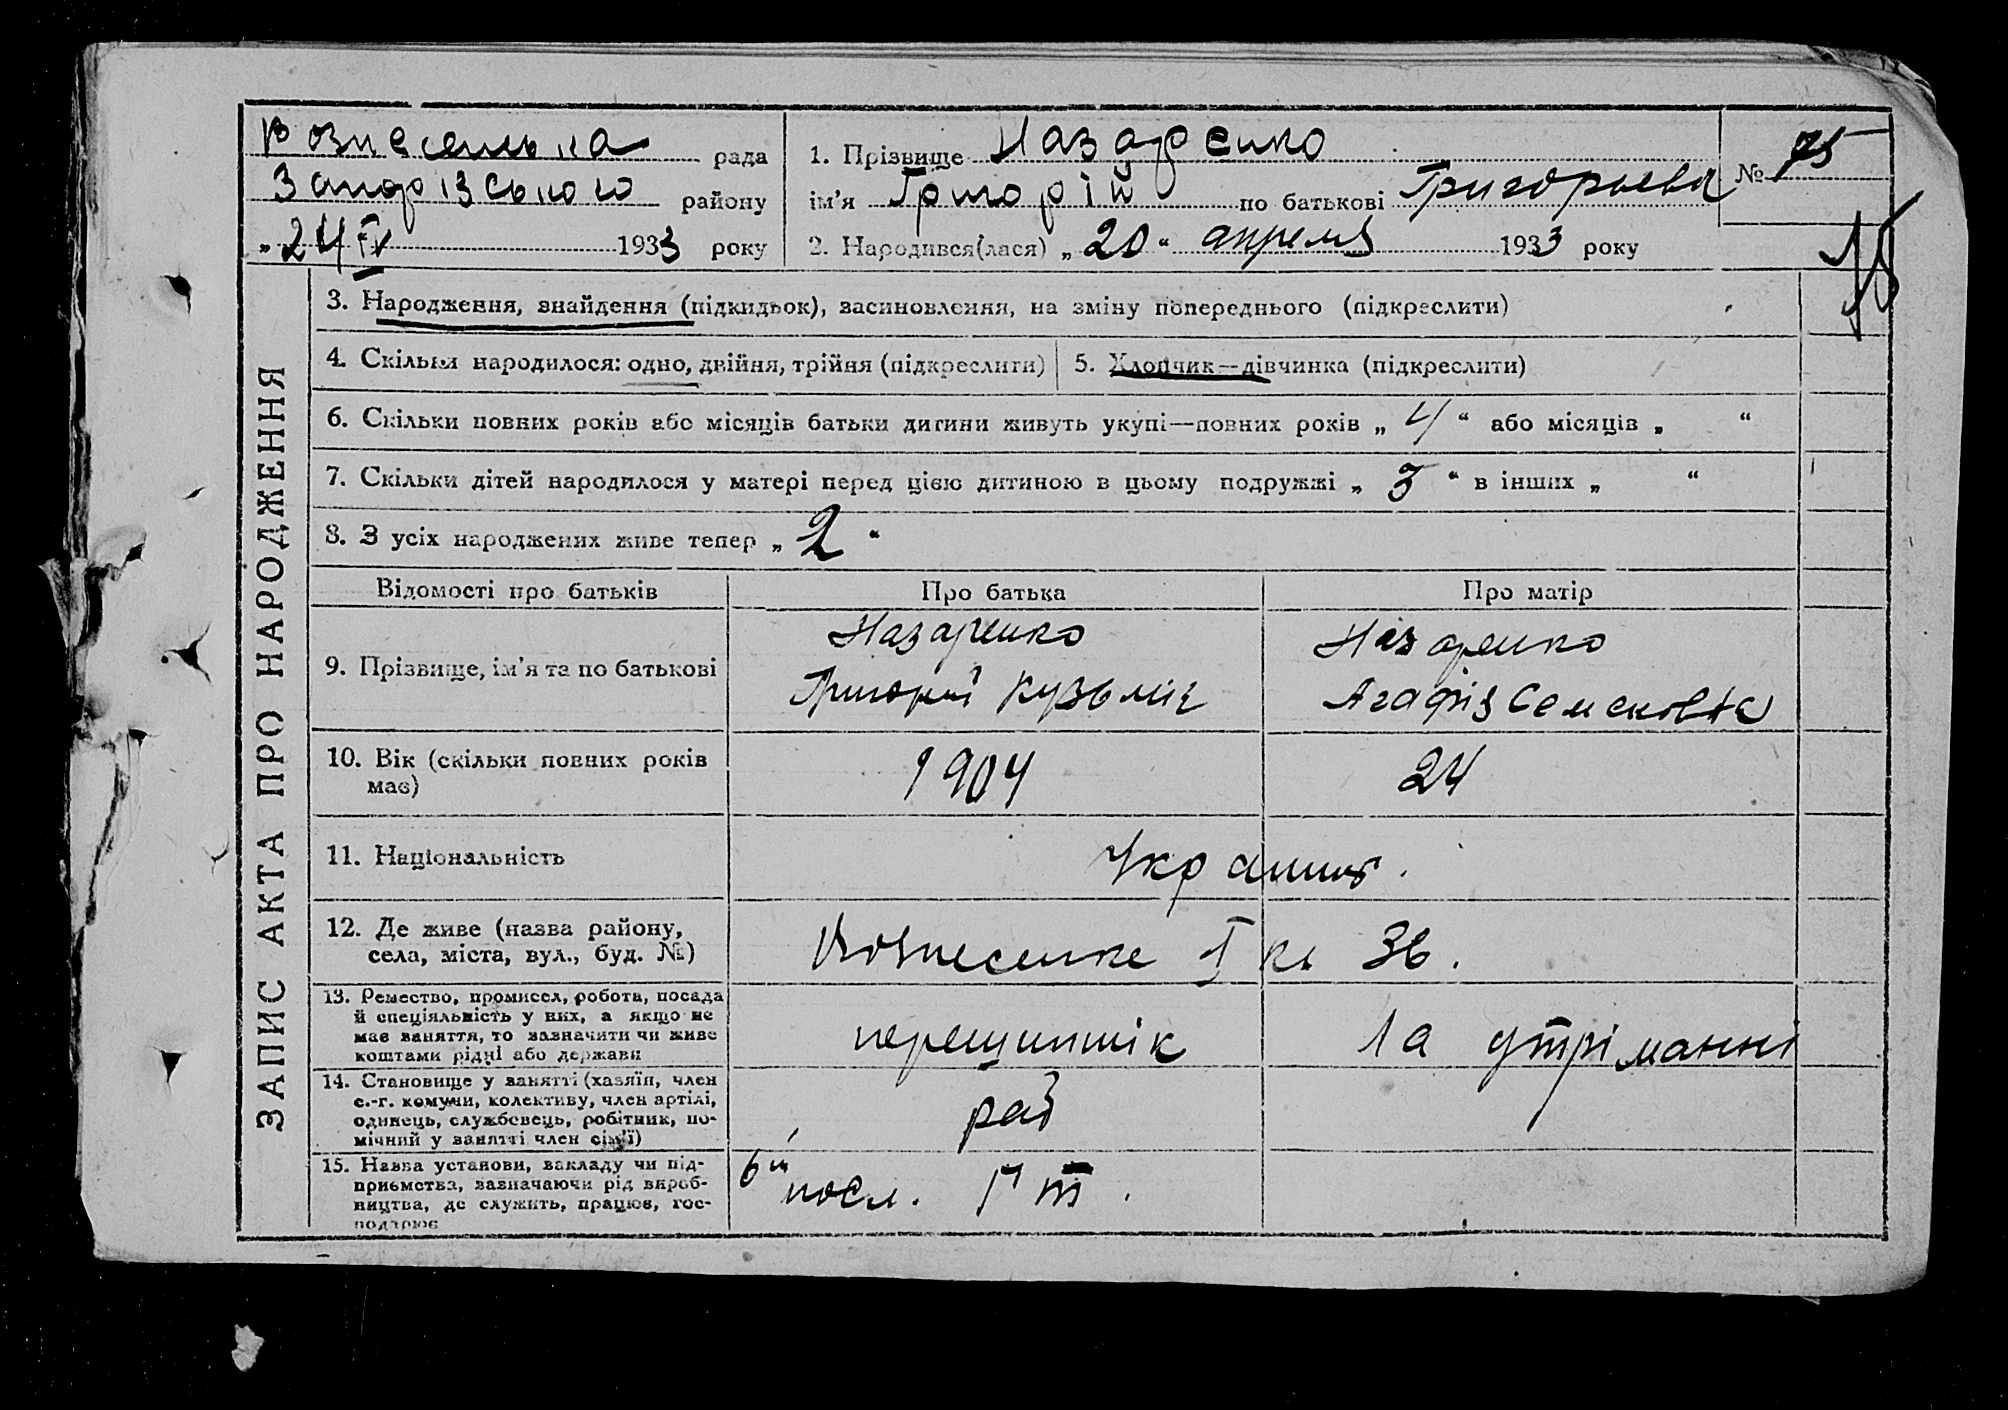 Вознесенська рада
Запорізського району
„24 IV 1933 року
1. Прізвище Назаренко
ім'я Григорій по батькові Григорьева
2. Народився(лася) „20“ апреля 1933 року
№ 75
ЗАПИС АКТА ПРО НАРОДЖЕННЯ
3. Народження, знайдення (підкидьок), засиновлення, на зміну попереднього (підкреслити)
4. Скільки народилося: одно, двійня, трійня (підкреслити)
5. Хлопчик—дівчинка (підкреслити)
6. Скільки повних років або місяців батьки дитини живуть укупі—повних років „4“ або місяців „ “
7. Скільки дітей народилося у матері перед цією дитиною в цьому подружжі „3“ в інших „ “
8. З усіх народжених живе тепер „2“
Відомості про батьків Про батька Про матір
9. Прізвище, ім'я та по батькові
Назаренко
Григорий Кузьміч
Назаренко
Агафія Семеновна
10. Вік (скільки повних років
має)
1904 24
11. Національність
Украинц.
12. Де живе (назва району,
села, міста, вул., буд. №)
Вознесенке I кв 36.
13. Ремество, промисел, робота, посада
й спеціяльність у них, а якщо не
має заняття, то зазначити чи живе
коштами рідні або держави
на утріманні
14. Становище у занятті (хазяїн, член
с.-г. комуни, колективу, член артілі,
одинець, службовець, робітник, по-
мічний у занятті член сім'ї)
раб
15. Назва установи, закладу чи під-
приємства, зазначаючи рід вироб-
ництва, де служить, працює, гос-
подарює
6й посл.